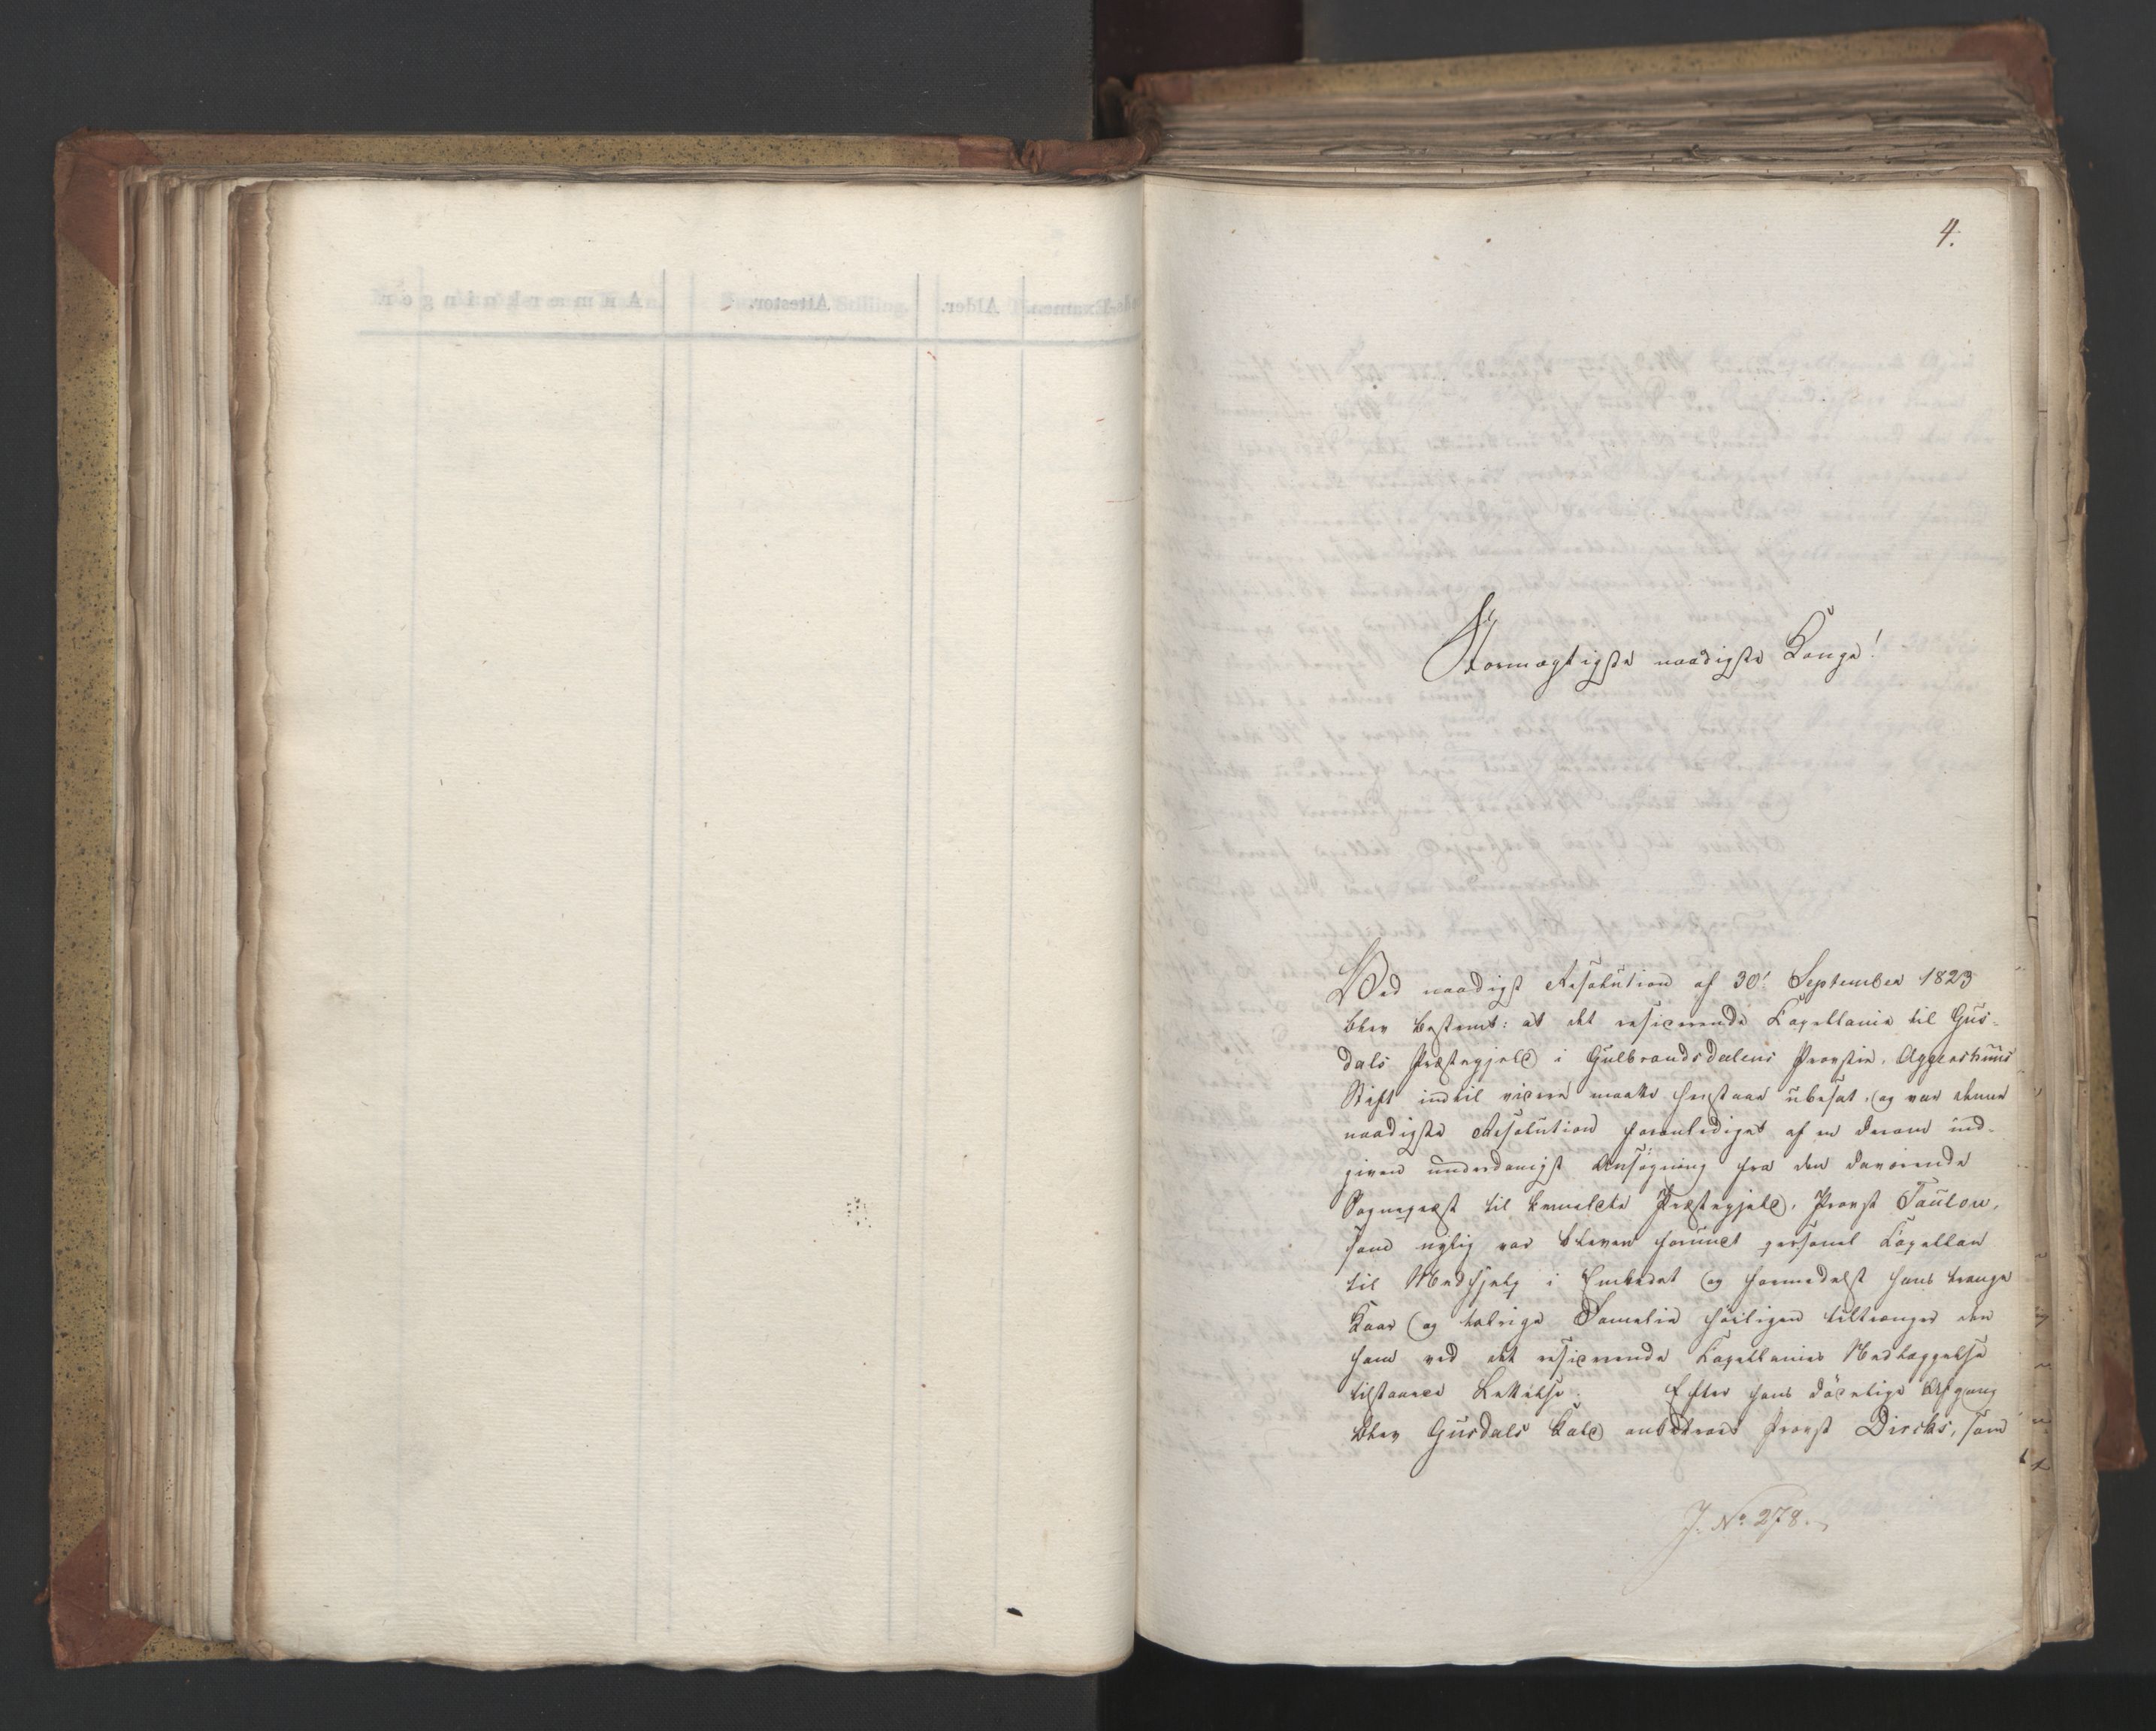 4.
Stormægtigste naadigste Konge!
Ved naadigst Resolution af 30: September 1823
blev bestemt: at det residerende Capellanie til Gus-
dals Præstegjeld i Gulbrandsdalens Provstie, Aggershuus
Stift indtil videre maatte henstaae ubesat, og var denne
naadigste Resolution foranlediget af en derom ind-
given underdanigst Ansøgning fra den daværende
Sognepræst til bemeldte Præstegjeld, Provst Taulow,
som nylig var bleven forundt personel Capellan
til Medhjelp i Embedet og formedelst hans trange
Kaar og talrige Familie høiligen tiltrænger den
ham ved det residerende Capellanies Nedlæggelse
tilstaaede Lettelse. Efter hans dödelige Afgang
blev Gusdals Kald anbetroet Provst Dircks, som
J. No. 278.